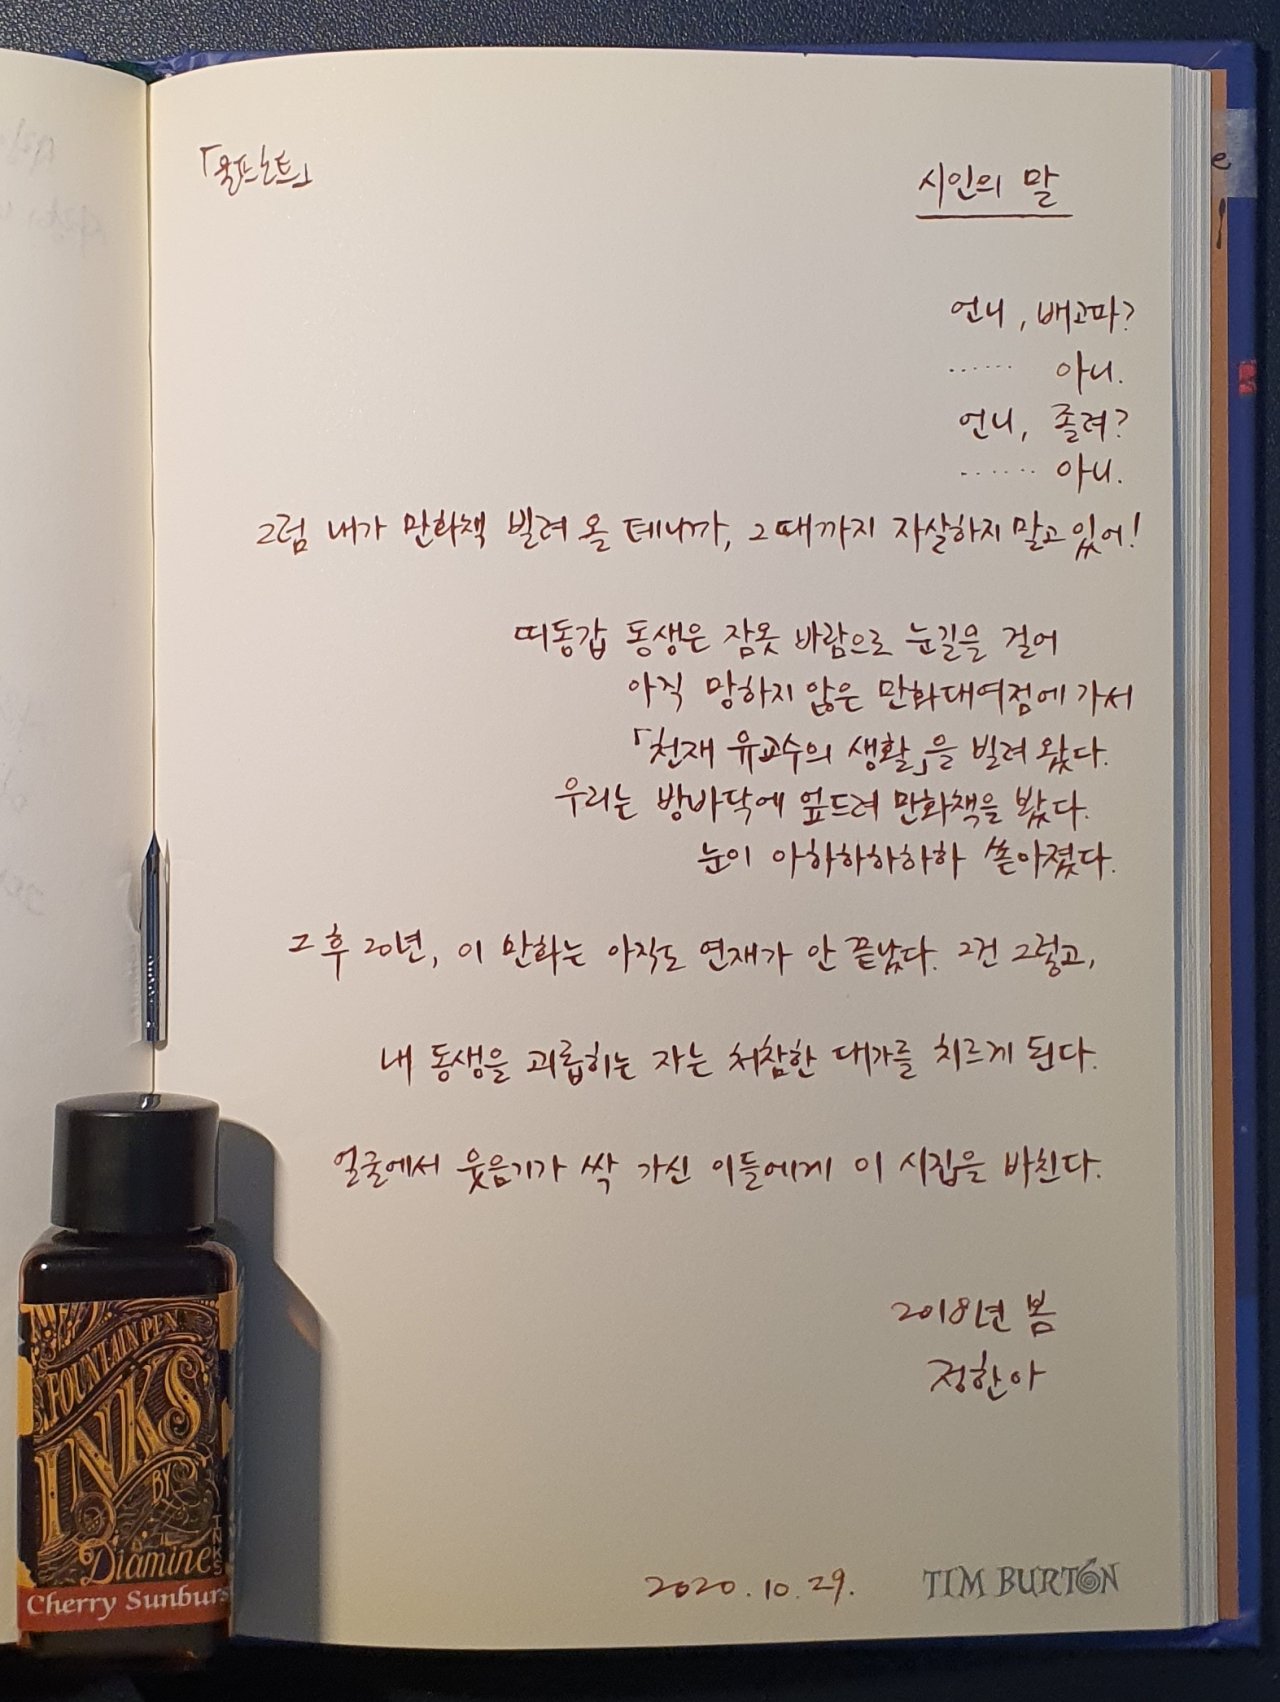 「울프노트」
시인의 말
언니, 배고파?
…… 아니.
언니, 졸려?
……. 아니.
그럼 내가 만화책 빌려 올 테니까, 그때까지 자살하지 말고 있어!
띠동갑 동생은 잠옷 바람으로 눈길을 걸어
아직 망하지 않은 만화대여점에 가서
「천재 유교수의 생활」을 빌려 왔다.
우리는 방바닥에 엎드려 만화책을 봤다.
눈이 아하하하하하 쏟아졌다.
그 후 20년, 이 만화는 아직도 연재가 안 끝났다. 그건 그렇고,
내 동생을 괴롭히는 자는 처참한 대가를 치르게 된다.
얼굴에서 웃음기가 싹 가신 이들에게 이 시집을 바친다.
2018년 봄
정한아
2020.10.29.
TIM BURTON
FOUNTAIN PEN
INKS
BY
Diamine
INKS
Cherry Sunburs